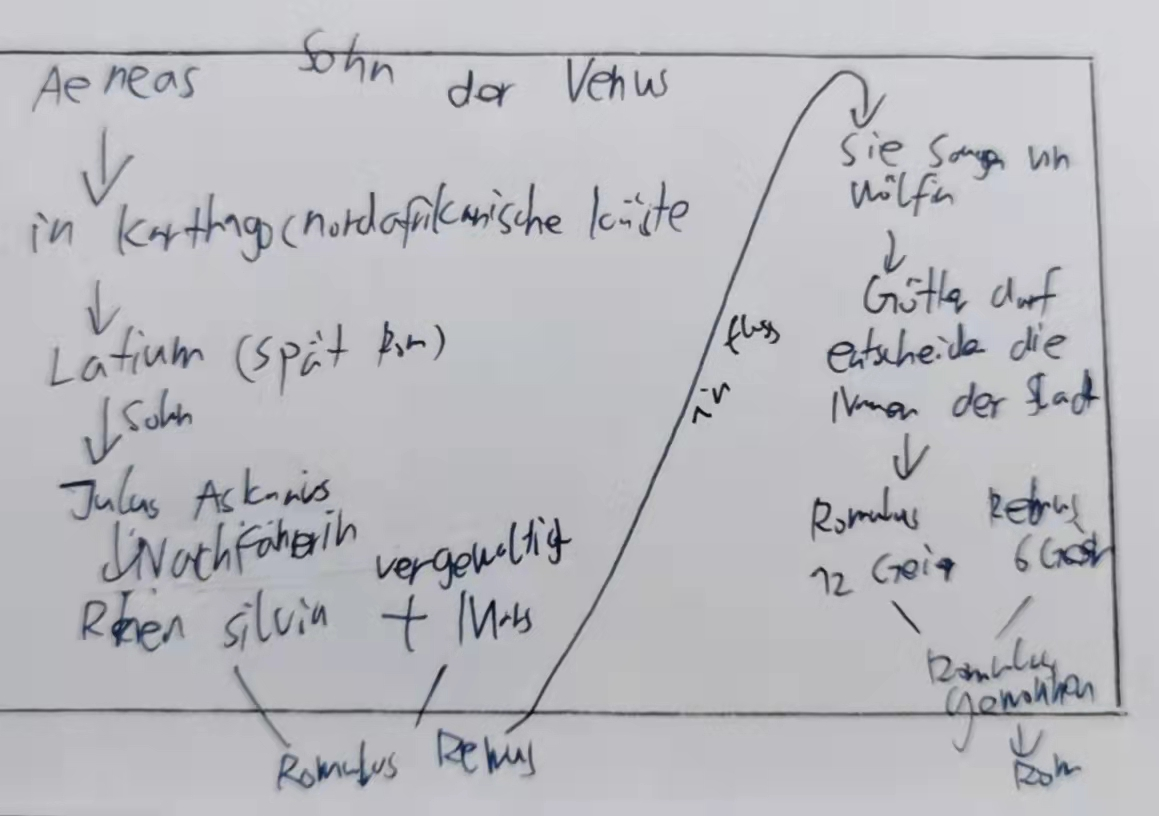 Aeneas Sohn der Venus
in Karthago (nordafrikanische Küste
Latium (spät Rom)
Sohn
Julus Askanius
Nachfahrerin
vergewaltigt
silvia + Mars
Romulus Remus
in fluss
Sie von
Wölfin
Götter darf
entscheide die
Namen der Stadt
Romulus Remus
12 Geier 6
Romulus
gewonnen
Rom